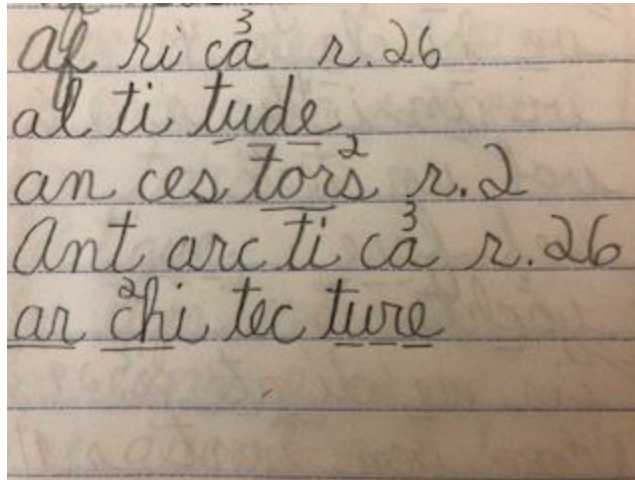 Af ri ca³ r. 26
al ti tude
an ces tors² r. 2
Ant arc ti ca³ r. 26
ar ²chi tec ture